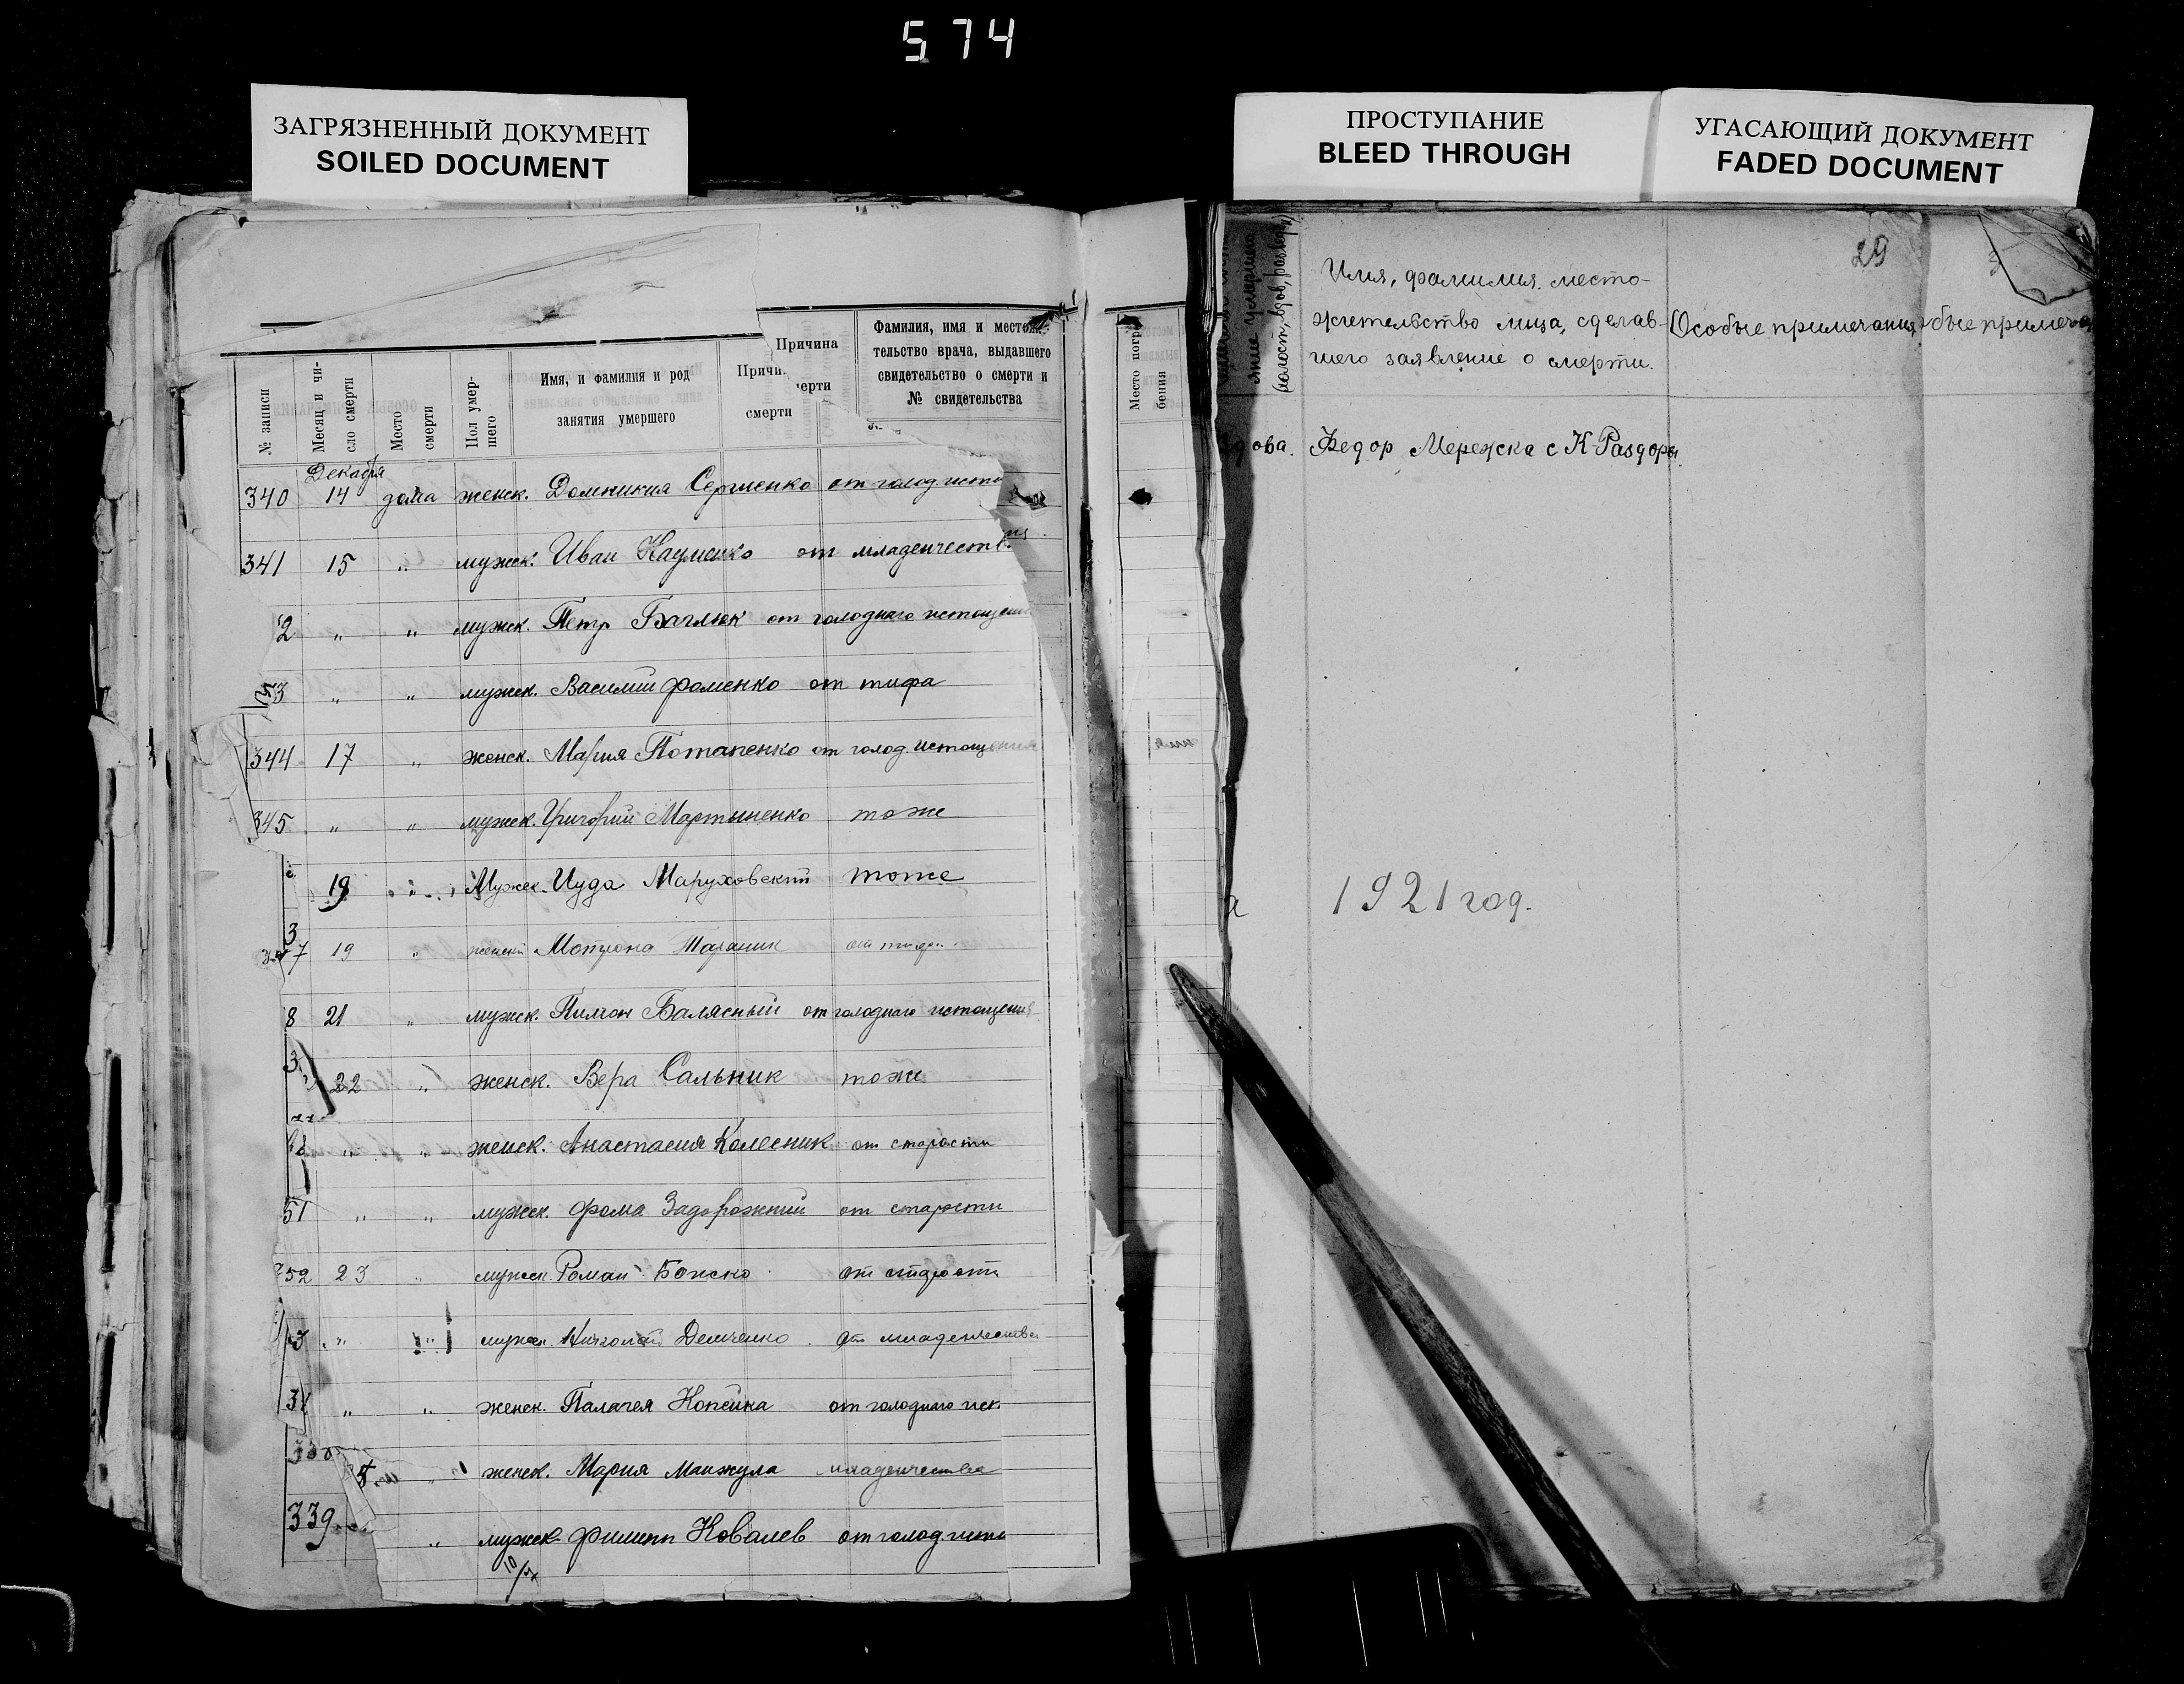 574
ЗАГРЯЗНЕННЫЙ ДОКУМЕНТ
SOILED DOCUMENT
ПРОСТУПАНИЕ
BLEED THROUGH
УГАСАЮЩИЙ ДОКУМЕНТ
FADED DOCUMENT
№ записи
Месяц и чи-
сло смерти
Место
смерти
Пол умер-
шего
Имя, и фамилия и род
занятия умершего
Причи
смерти
Причина
ерти
Фамилия, имя и место
тельство врача, выдавшего
свидетельство о смерти и
№ свидетельства
Декабря
340 14 дома женск. Домникия Сергиенко от голод. исто
341 15 „ мужск. Иван Науменко от младенчеств
2 „ „ мужск. Петр Баглюк от голоднаго истощени
3 „ „ мужск. Василий Фоменко от тифа
344 17 „ женск. Мария Потапенко от голод. истощения
345 „ „ мужск. Григорий Мартыненко тоже
19 „ Мужск. Иуда Маруховский тоже
7 19 „ женск Мотрона
8 21 „ мужск. Пимон Балясный от голоднаго истощения
22 „ женск. Вера Сальник тоже
„ „ женск. Анастасия Колесник от старости
51 „ „ мужск. Фома Задорожний от старости
52 23 „ мужск. Роман от старости
3 „ „ мужск. Николай Демченко от младенчества
„ „ женск. Палагея Копейка от голоднаго ист
„ женск. Мария Манжула младенчества
339 „ мужск. Филипп Ковалев от голод. исто
Место погре
бения
(холост, вдов, развод)
29
Имя, фамилия, место-
жительство лица, сделав-
шего заявление о смерти.
Особые примечания
бые примеча
дова. Федор Мережка с К-Раздоры.
1921 год.